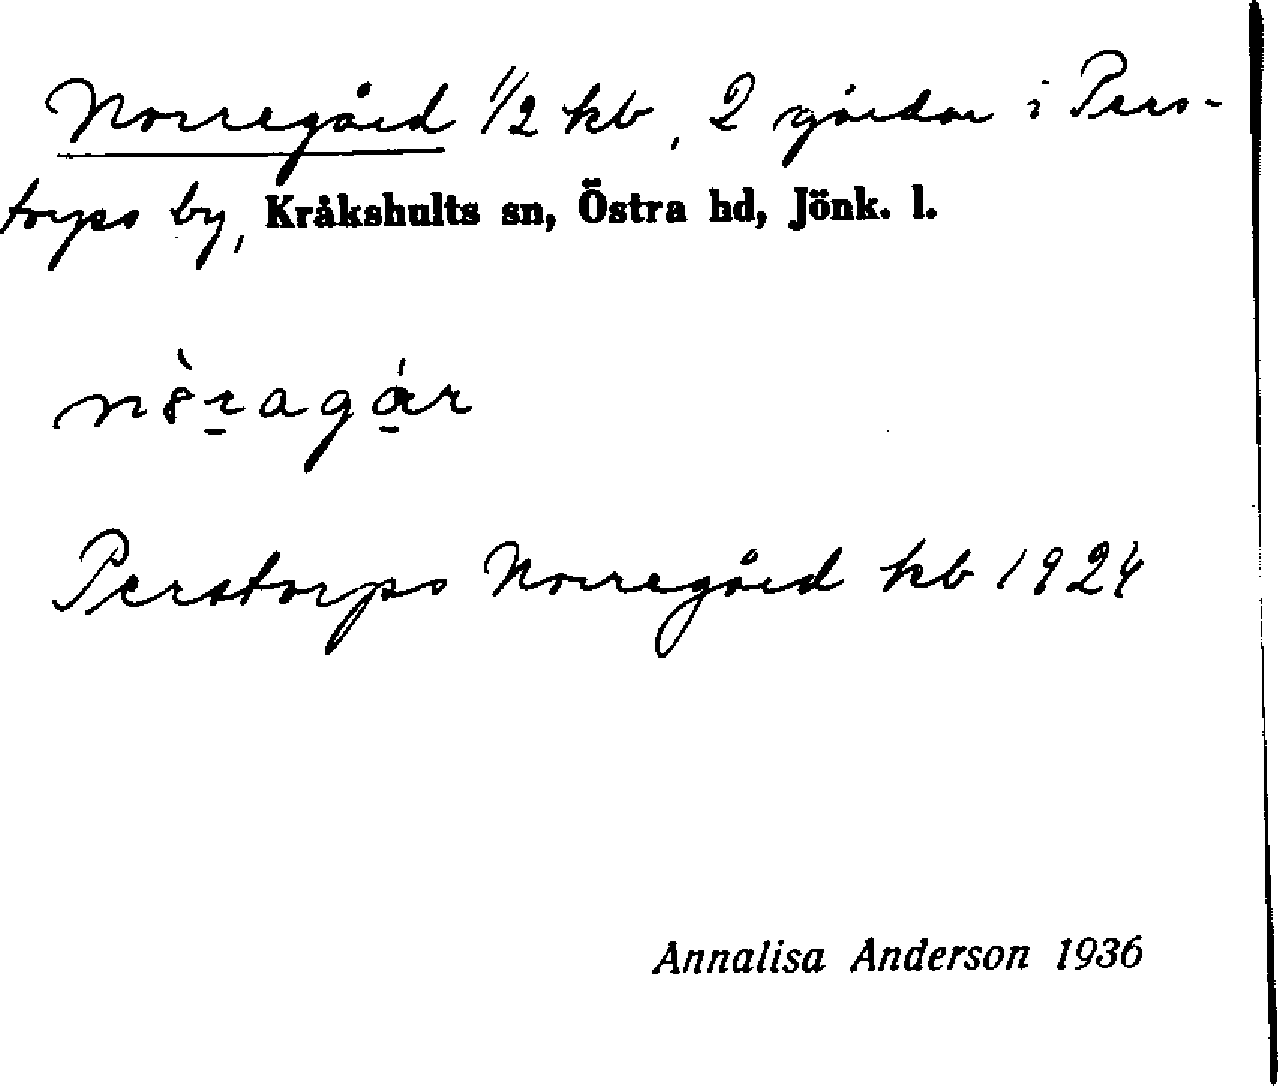 Norregård 1/2 kb, 2 gårdar i Pers-
torps by, Kråkshults sn, Östra hd, Jönk. l.
Perstorps Norregård kb 1924
Annalisa Anderson 1936